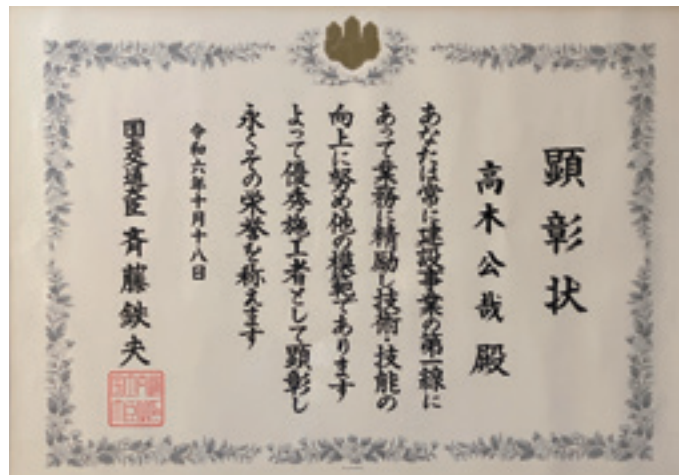 顕彰状
高木公哉殿
あなたは常に建設事業の第一線に
あって業務に精励し技術・技能の
向上に努め他の模範であります
よって優秀施工者として顕彰し
永くその栄誉を称えます
令和六年十月十八日
国土交通大臣 斉藤鉄夫